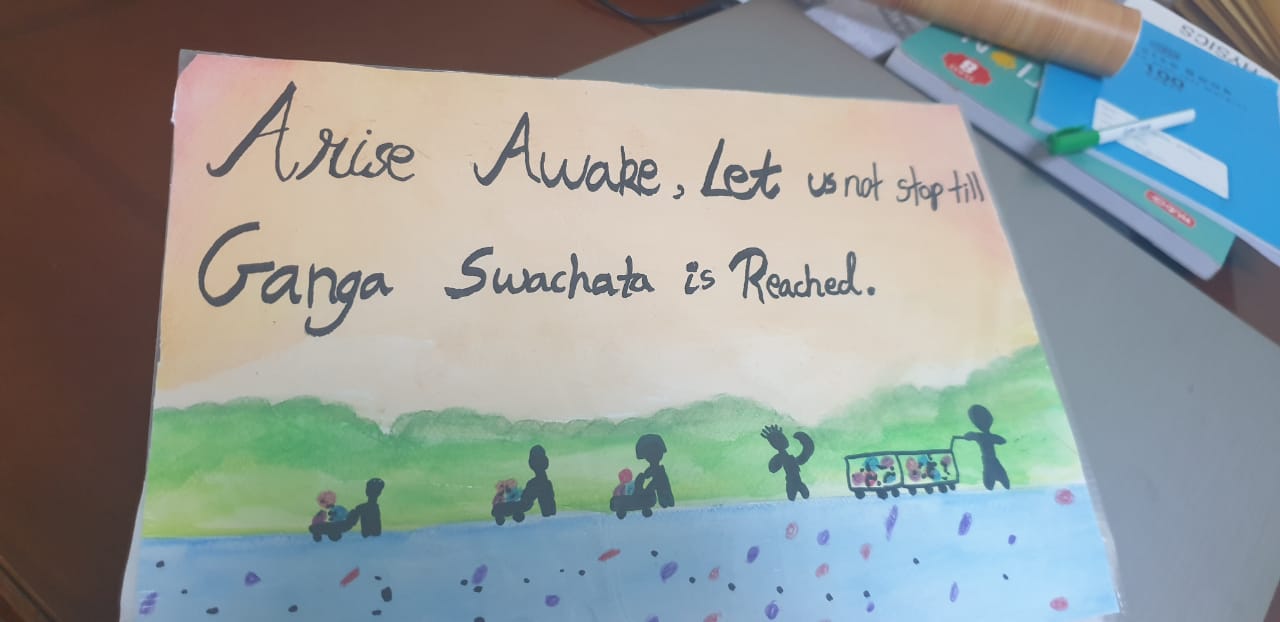 Arise Awake, Let us not stop till
Ganga Swachata is Reached.
PHYSICS
100
8